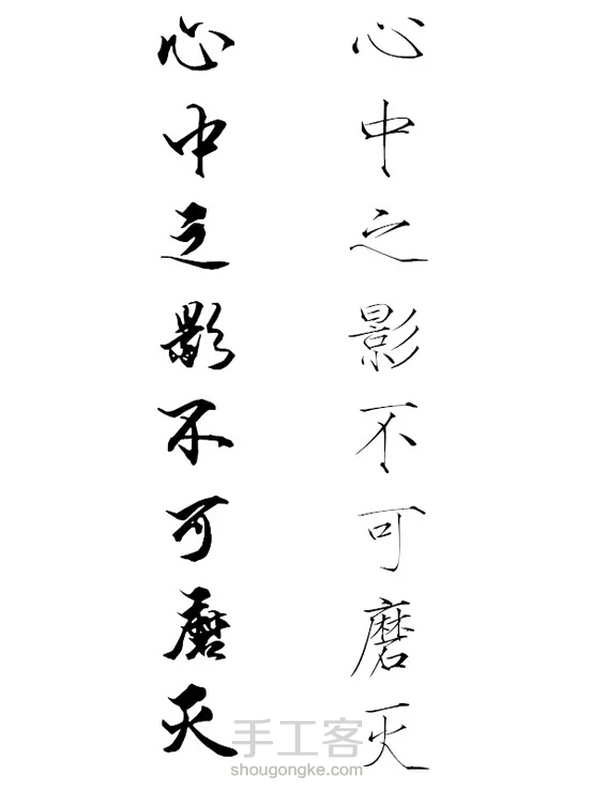 心中之影不可磨灭
心中之影不可磨灭
手工客
shougongke.com